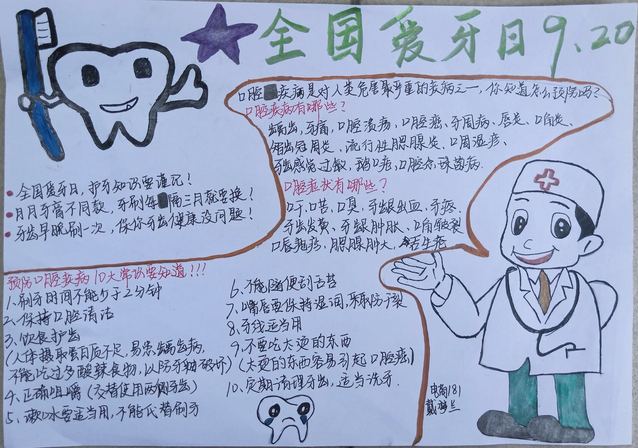 全国爱牙日9.20
口腔疾病是对人类危害最严重的疾病之一,你知道怎么预防吗?
口腔疾病有哪些?
龋齿,牙痛,口腔溃疡,口腔癌,牙周病,唇炎,口角炎,
智齿冠周炎,流行性腮腺炎,口周湿疹,
牙齿感觉过敏,鹅口疮,口腔念珠菌病.
口腔症状有哪些?
口干、口苦、口臭,牙龈出血,牙疼,
牙齿发紫,牙龈肿胀,口角皲裂
口唇疱疹,腮腺肿大,舌生疮
全国爱牙日,护牙知识要谨记!
月月牙膏不同款,牙刷每隔三月就要换!
牙齿早晚刷一次,保你牙齿健康没问题!
预防口腔疾病10大常识要知道!!!
1.刷牙时间不能少于2分钟
2、保持口腔清洁
3、饮食护齿
(人体摄取蛋白质不足,易患龋齿病,
不能吃过多酸辣食物,以防牙釉破坏)
4、正确咀嚼(交替使用两侧牙齿)
5、漱口水要适当用,不能代替刷牙
6、不能随便刮舌苔
7、嘴唇要保持湿润,采取防裂
8、牙线适当用
9、不要吃太烫的东西
(太烫的东西容易引起口腔癌)
10、定期清理牙齿,适当洗牙.
电商181
戴梦兰